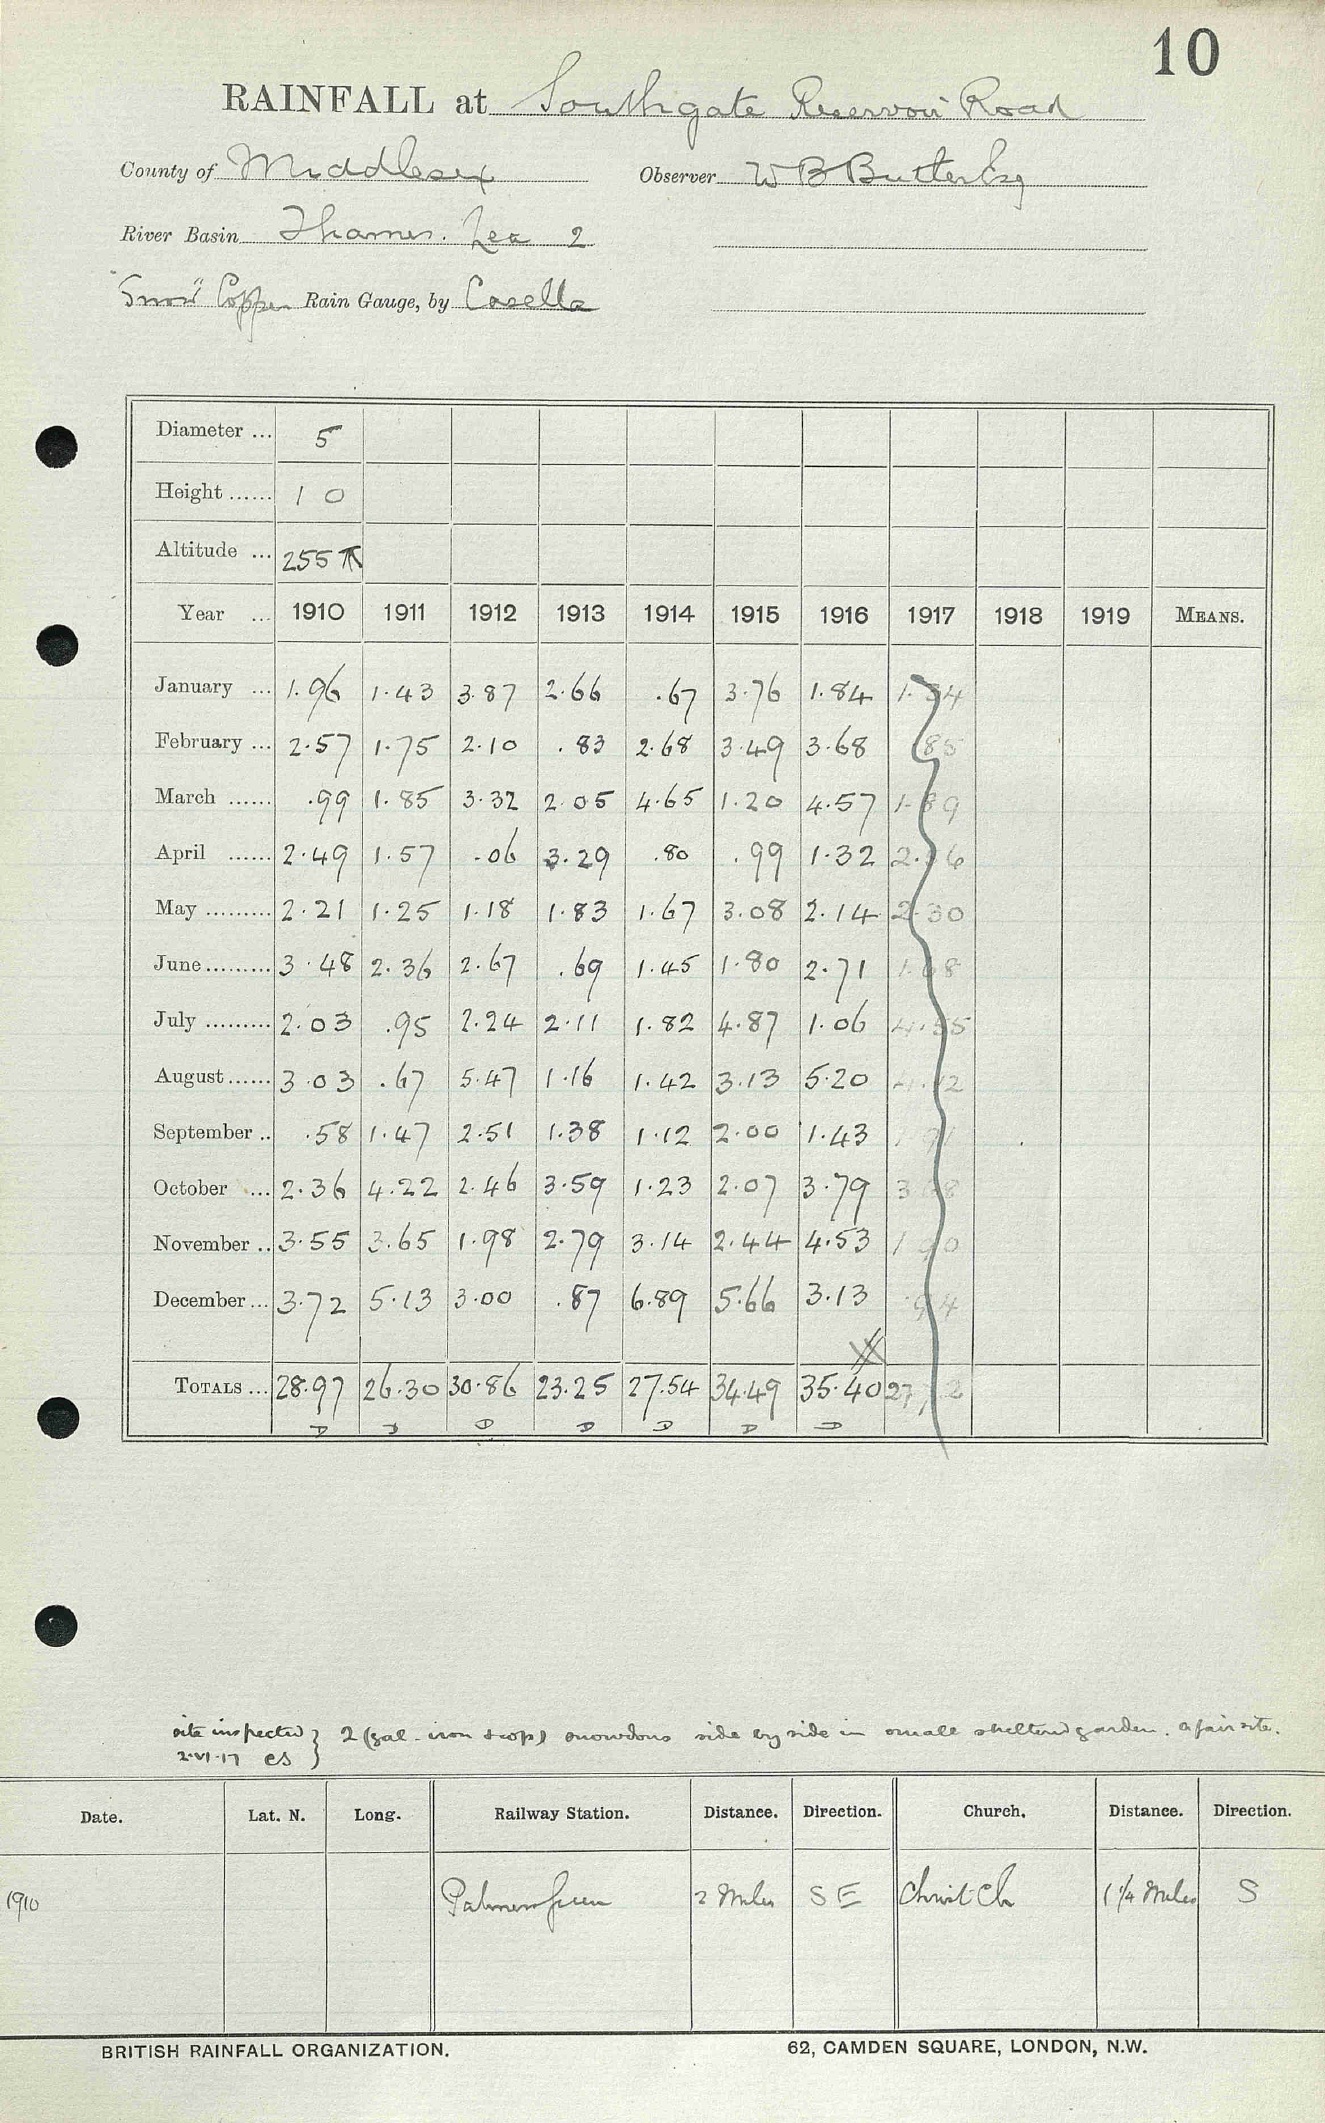 10
RAINFALL at Southgate Reservoir Road
County of Middlesex Observer W B Butler Esq
River Basin Thames. Lea 2
"Snow" Copper Rain Gauge, by Casella
Diameter ... 5
Height ...... 10
Altitude ... 255 ft
Year ... 1910 1911 1912 1913 1914 1915 1916 1917 1918 1919 MEANS.
January ... 1.96 1.43 3.87 2.66 .67 3.76 1.84
February ... 2.57 1.75 2.10 .83 2.68 3.49 3.68 .85
March ...... .99 1.85 3.32 2.05 4.65 1.20 4.57
April ...... 2.49 1.57 .06 3.29 .80 .99 1.32
May ......... 2.21 1.25 1.18 1.83 1.67 3.08 2.14 2.30
June ......... 3.48 2.36 2.67 .69 1.45 1.80 2.71
July ......... 2.03 .95 2.24 2.11 1.82 4.87 1.06
August ...... 3.03 .67 5.47 1.16 1.42 3.13 5.20
September .. .58 1.47 2.51 1.38 1.12 2.00 1.43
October ... 2.36 4.22 2.46 3.59 1.23 2.07 3.79
November .. 3.55 3.65 1.98 2.79 3.14 2.44 4.53
December ... 3.72 5.13 3.00 .87 6.89 5.66 3.13
TOTALS ... 28.97 26.30 30.86 23.25 27.54 34.49 35.40
D D D D D D D
site inspected } 2 (gal. iron & cop) snowdons side by side in small sheltered garden. A fair site.
2.VI.17 CS }
Date. Lat. N. Long. Railway Station. Distance. Direction. Church. Distance. Direction.
1910 Palmers Green 2 Miles SE Christ Ch 1 1/4 Miles S
BRITISH RAINFALL ORGANIZATION. 62, CAMDEN SQUARE, LONDON, N.W.